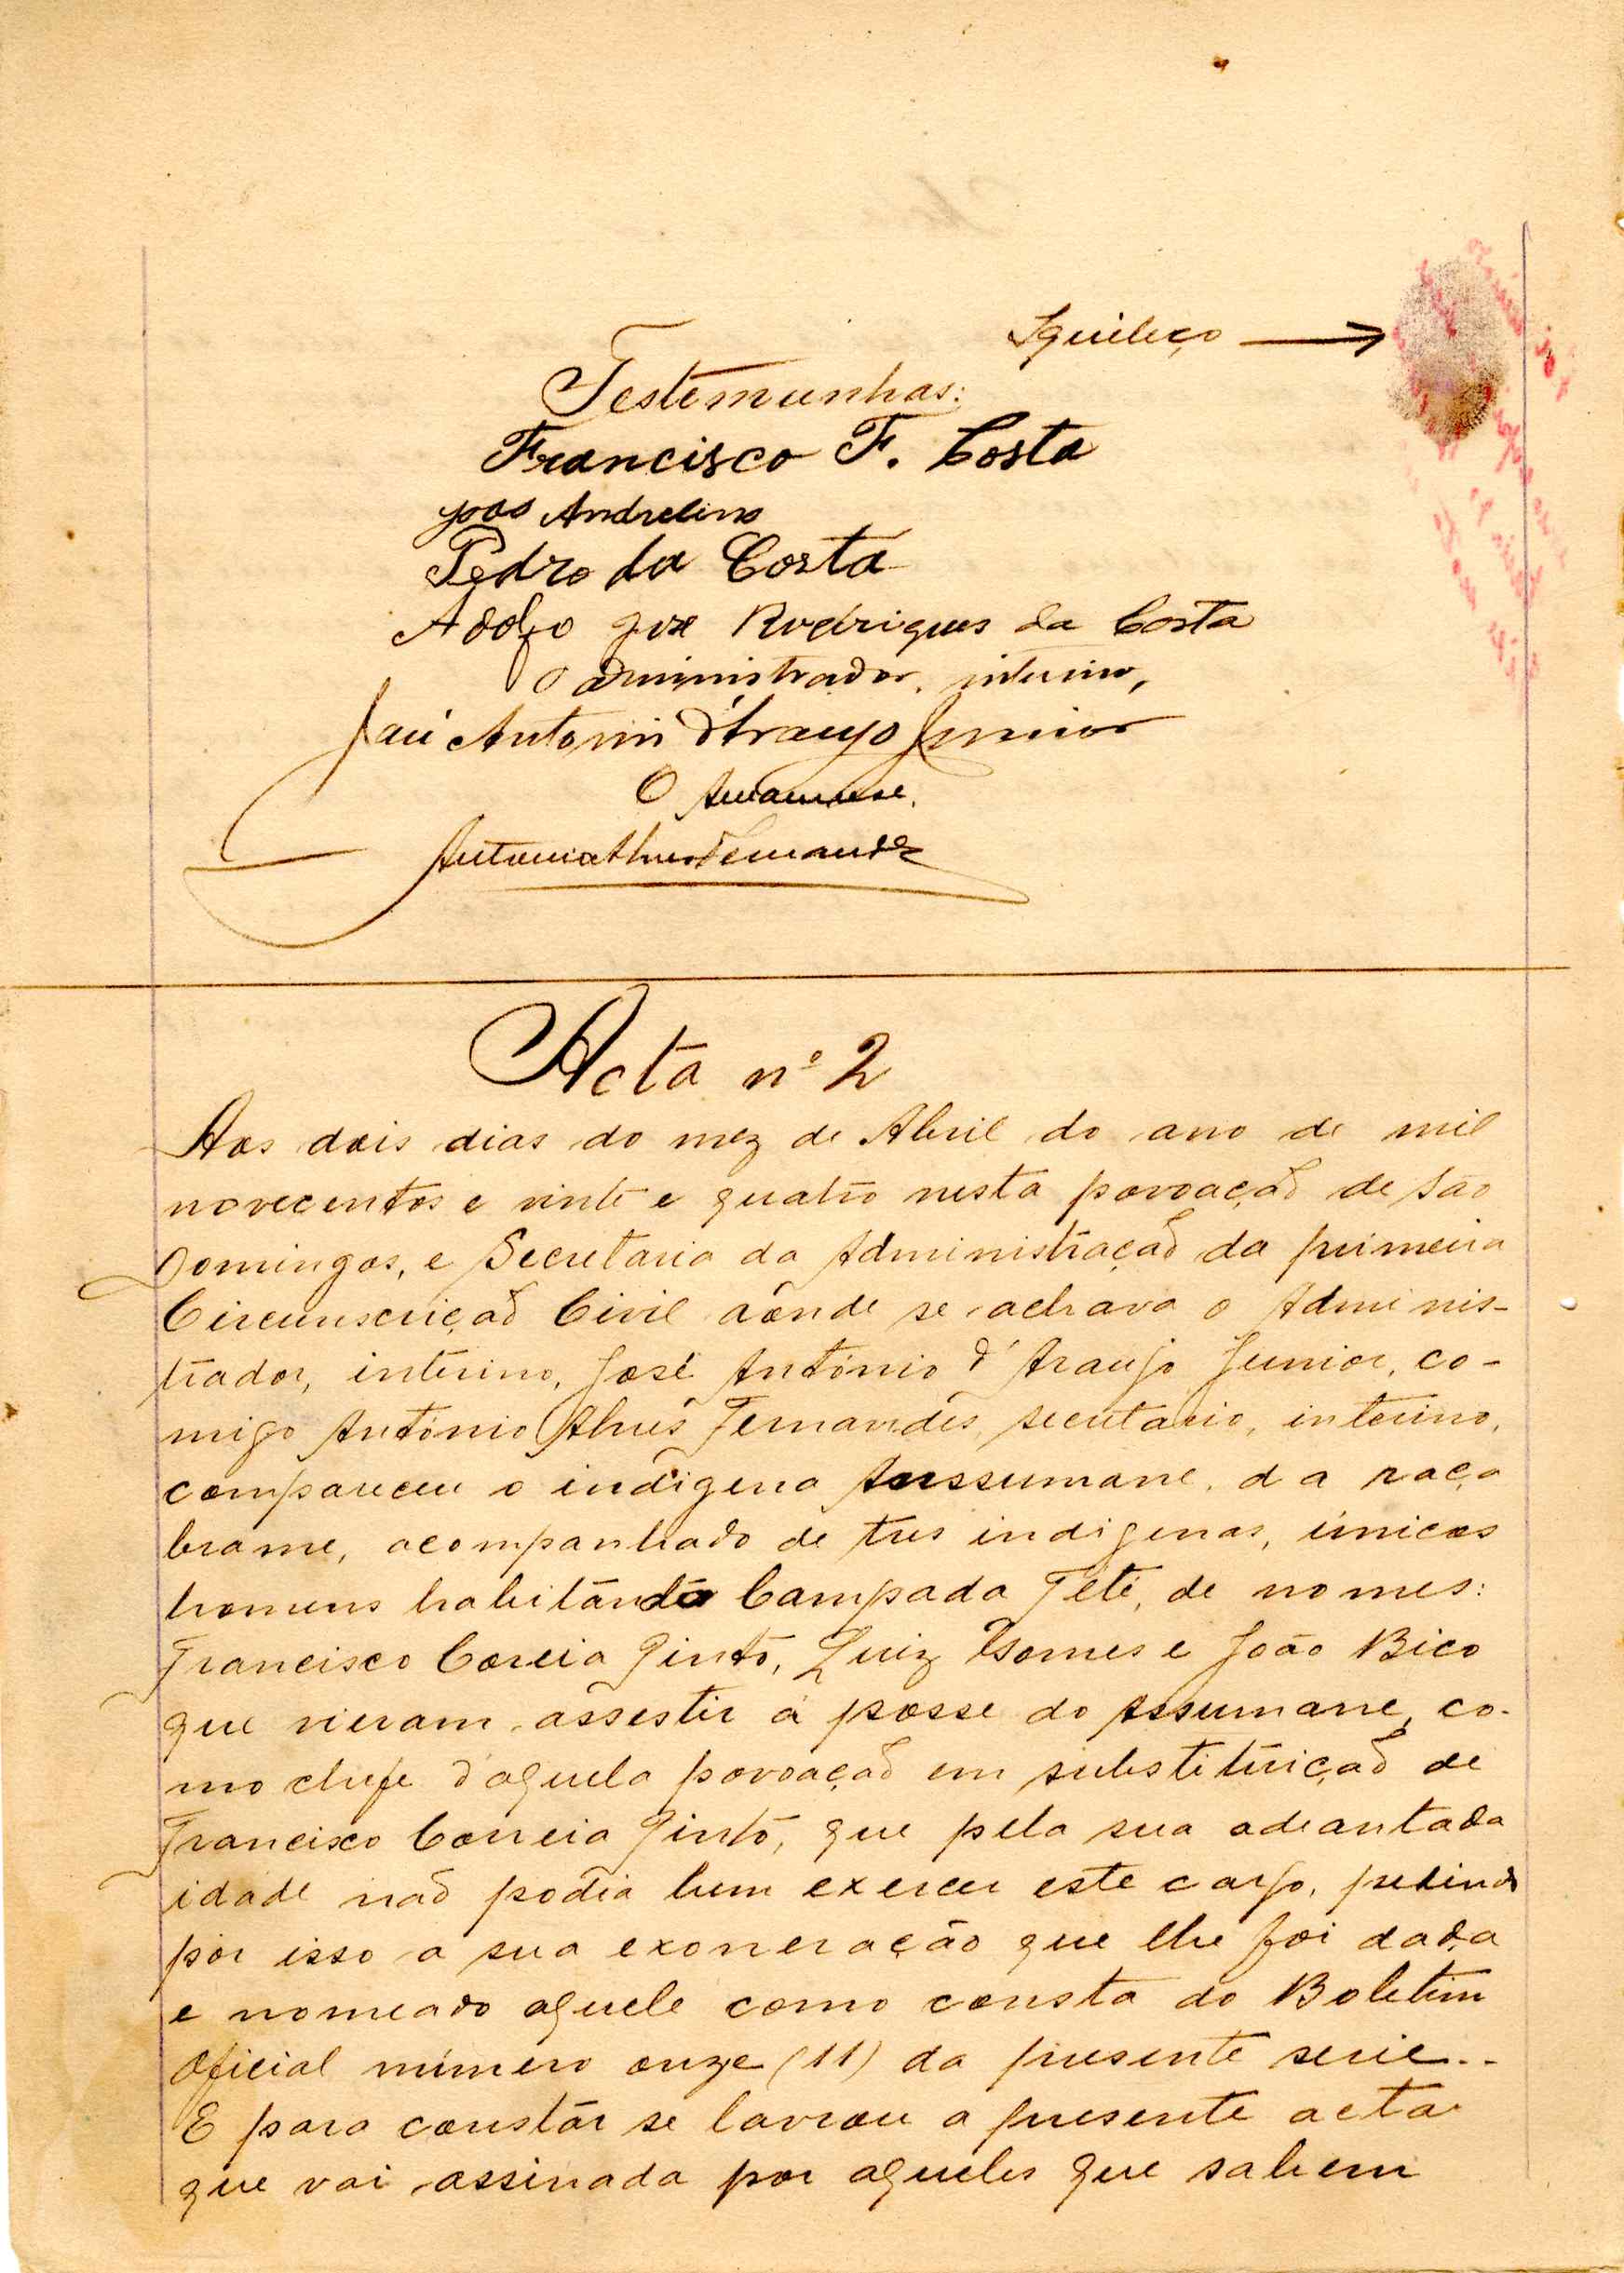 Testemunhas:
Francisco F. Costa
João Andrelino
Pedro da Costa
Adolfo José Rodrigues da Costa
O administrador, interino,
José Antonio d'Araujo Junior
O Amanuense,
Antonio Alves Fernandes
Acta nº 2
Aos dois dias do mez de Abril do ano de mil
novecentos e vinte e quatro nesta povoação de São
Domingos, e Secretaria da Administração da primeira
Circunscrição Civil aonde se achava o Adminis-
trador, interino, José António d'Araujo Junior, co-
migo António Alves Fernandes, secretario, interino,
compareceu o indigena Assumane, da raça
brame, acompanhado de tres indigenas, únicos
homens habitando Campada Tété, de nomes:
Francisco Correia Pinto, Luiz Gomes e João Bico
que vieram assestir á posse do Assumane, co-
mo chefe d'aquela povoação em substituição de
Francisco Correia Pinto, que pela sua adeantada
idade não podia bem exercer este cargo, pedindo
por isso a sua exoneração que lhe foi dada
e nomeado aquele como consta do Boletim
Oficial número onze (11) da presente serie..-
E para constár se lavrou a presente acta
que vai assinada por aqueles que sabem